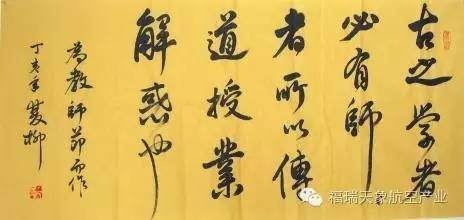 古之学者
必有師
者所以傳
道授業
解惑也
為教師節而作
丁亥年雙柳
福瑞天象航空产业